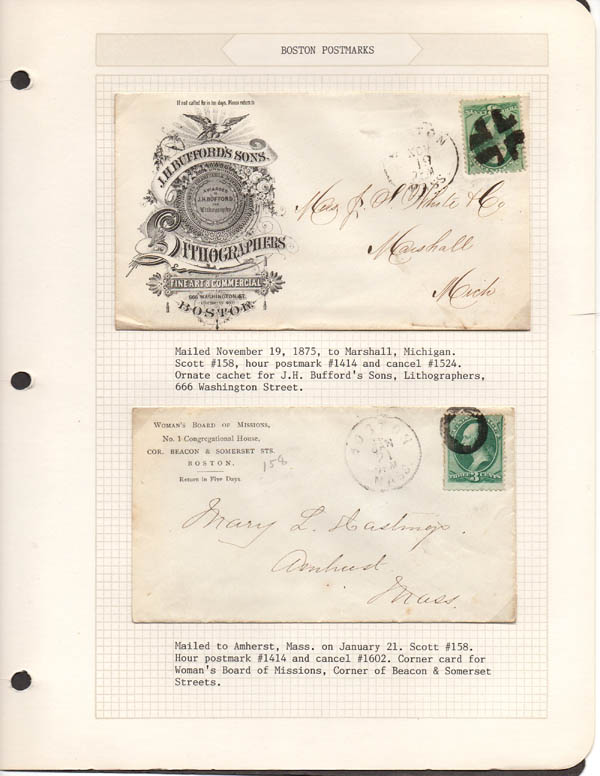 BOSTON POSTMARKS
If not called for in ten days, Please return to
J.H. BUFFORD'S SONS.
J.H. BUFFORD
Lithographers
LITHOGRAPHERS
FINE ART & COMMERCIAL
666 WASHINGTON ST.
BOSTON
BOSTON
NOV
19
MASS
Mess J. S White & Co
Marshall
Mich
Mailed November 19, 1875, to Marshall, Michigan.
Scott #158, hour postmark #1414 and cancel #1524.
Ornate cachet for J.H. Bufford's Sons, Lithographers,
666 Washington Street.
Woman's Board of Missions,
No. 1 Congregational House,
COR. BEACON & SOMERSET STS.
BOSTON.
Return in Five Days
158
BOSTON
JAN
21
MASS
3 CENTS
Mary L. Hastings.
Amherst
Mass.
Mailed to Amherst, Mass. on January 21. Scott #158.
Hour postmark #1414 and cancel #1602. Corner card for
Woman's Board of Missions, Corner of Beacon & Somerset
Streets.